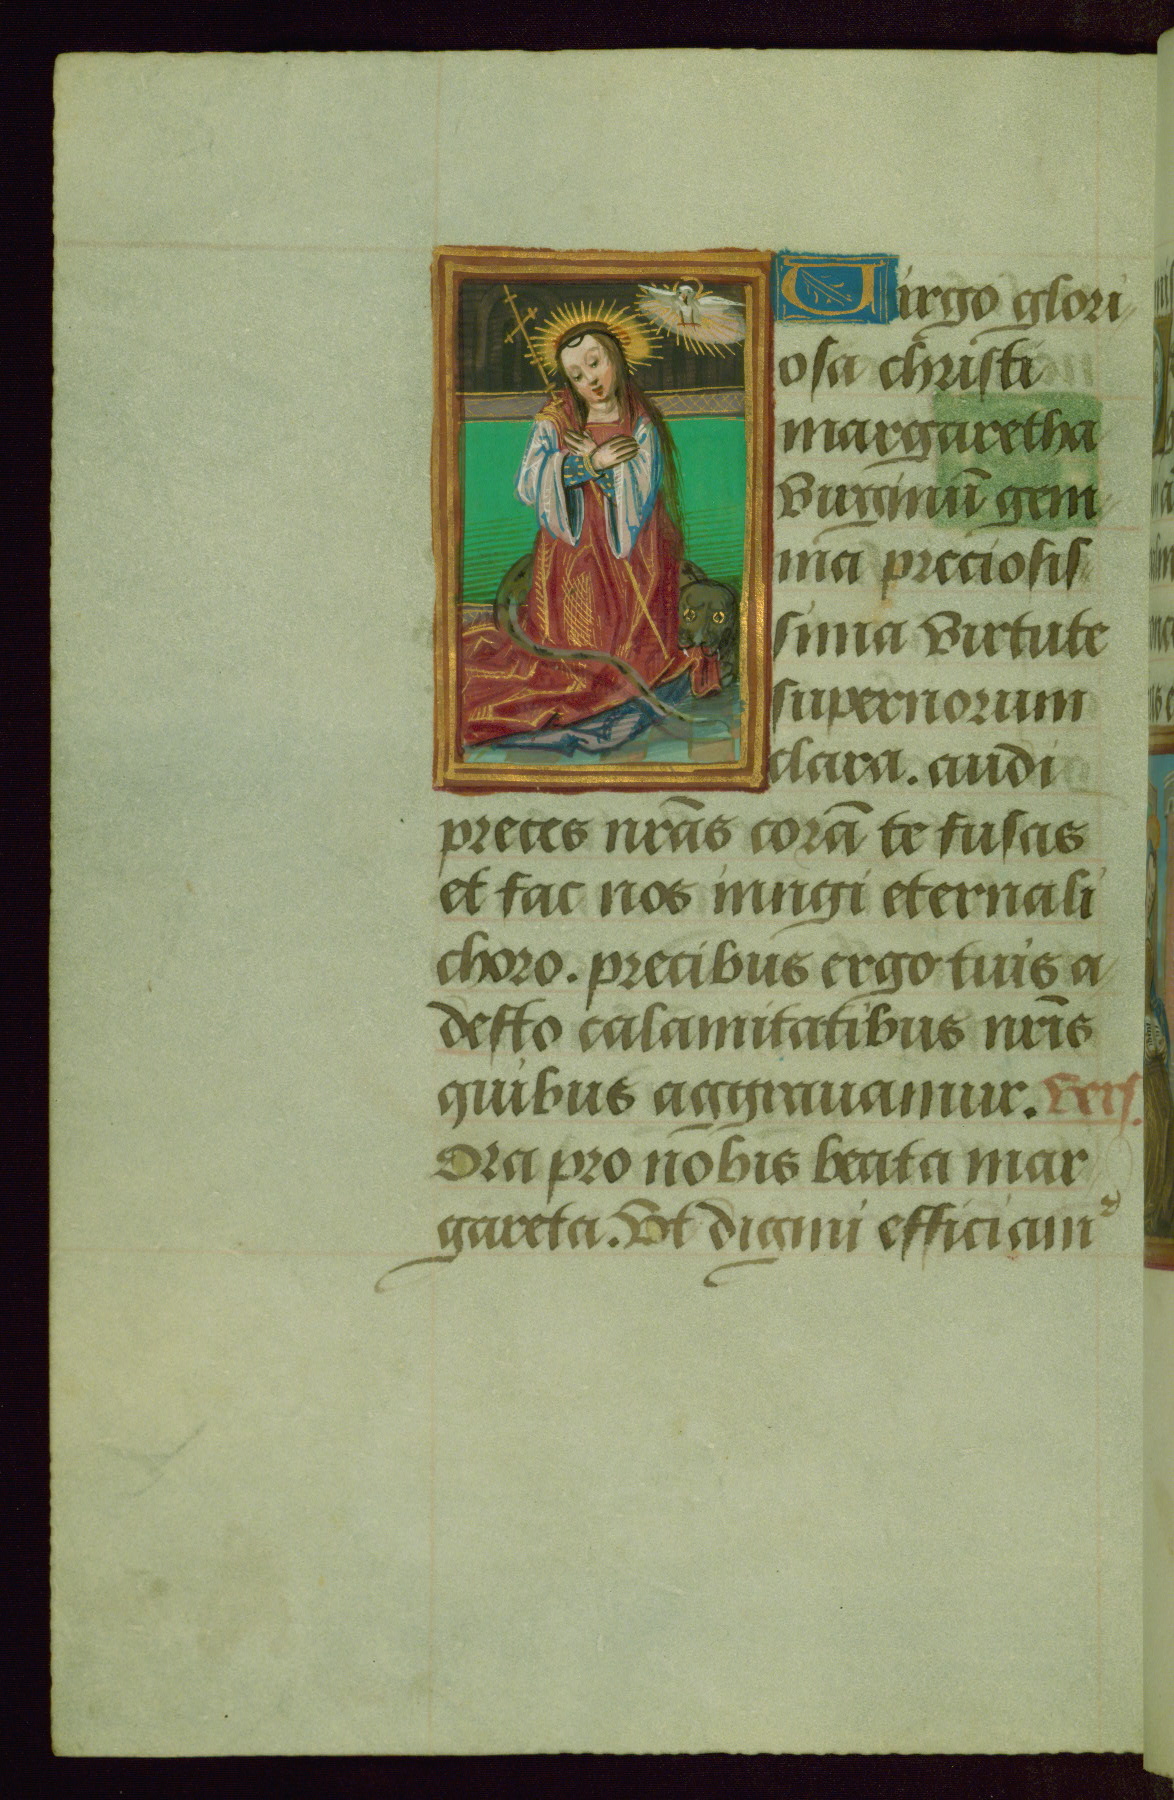 Uirgo glori
osa christi
margaretha
Virginū gem
ma preciosis
sima Virtute
supernorum
clara. audi
preces nrās corā te fusas
et fac nos iungi eternali
choro. precibus ergo tuis a
desto calamitatibus nrīs
quibus aggrauamur. Vers.
Ora pro nobis beata mar
gareta. Vt digni efficiam᷑